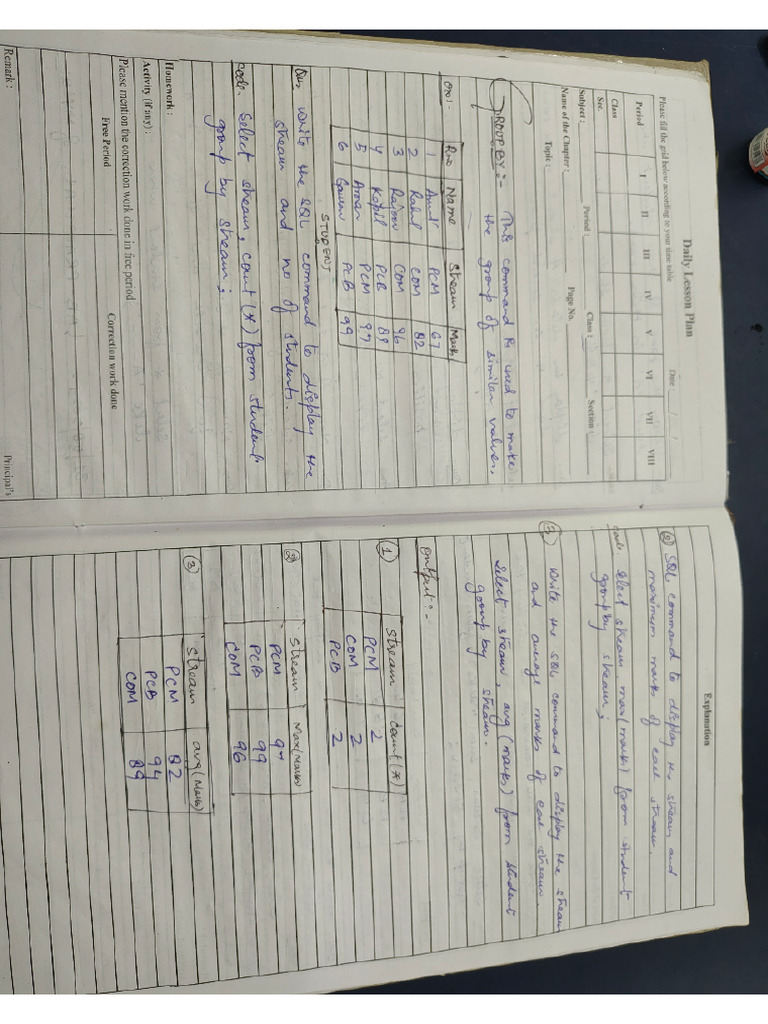 Daily Lesson Plan
Please fill the grid below according to your time table
Date : / /
Period I II III IV V VI VII VIII
Class
Sec.
Subject : Period : Class : Section :
Name of the Chapter : Page No.
Topic :
GROUP BY :- This command is used to make
the group of similar values.
Rno Name Stream Marks
1 PCM 67
2 Rahul COM 82
3 COM 96
4 Kapil PCB 89
5 Aman PCM 97
6 Gaurav PCB 99
STUDENT
Ques. Write the SQL command to display the
stream and no of students.
Code. Select stream, count(*) from student
group by stream;
Homework :
Activity (if any) :
Please mention the correction work done in free period
Free Period Correction work done
Remark : Principal's
Explanation
SQL command to display the stream and
maximum marks of each stream.
code. Select stream, max(marks) from student
group by stream;
Write the SQL command to display the stream
and average marks of each stream.
Select stream, avg(marks) from student
group by stream.
Output :-
① Stream Count(*)
PCM 2
COM 2
PCB 2
② Stream Max(Marks)
PCM 97
PCB 99
COM 96
③ Stream avg(Marks)
PCM 82
PCB 94
COM 89